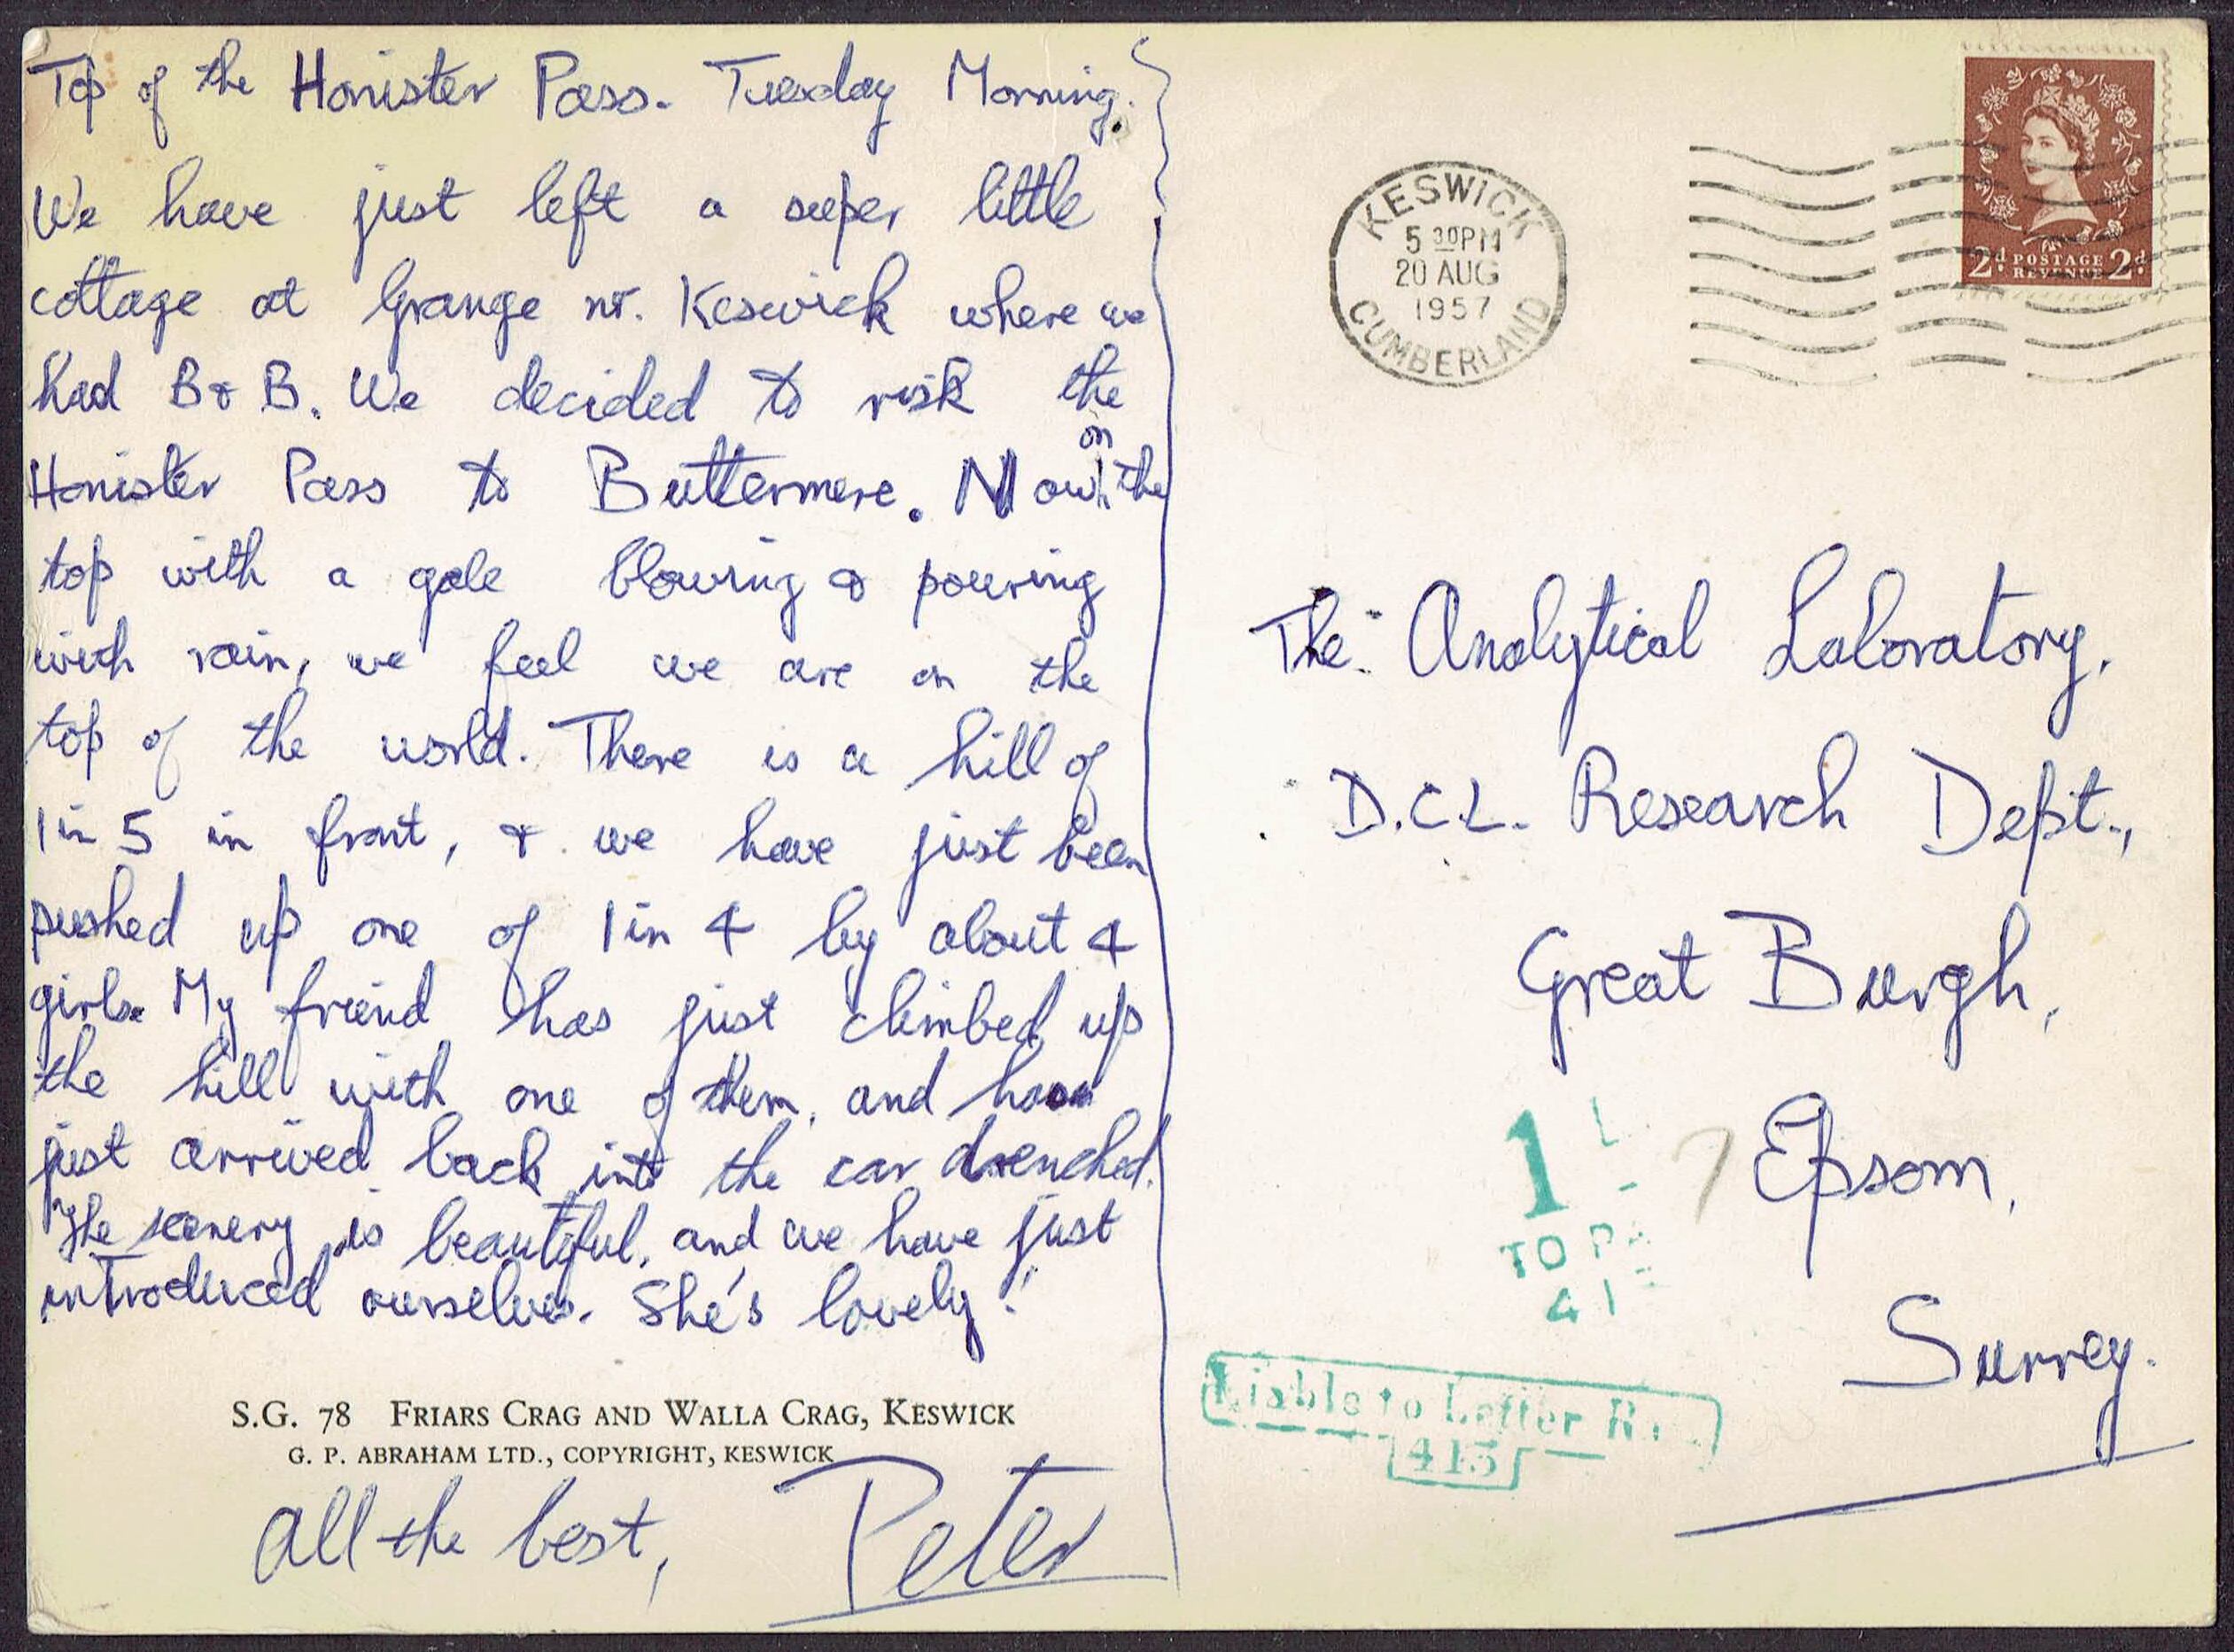 Top of the Honister Pass. Tuesday Morning.
We have just left a super little
cottage at Grange nr. Keswick where we
had B & B. We decided to risk the
Honister Pass to Buttermere. Now on the
top with a gale blowing & pouring
with rain, we feel we are on the
top of the world. There is a hill of
1 in 5 in front, & we have just been
pushed up one of 1 in 4 by about 4
girls. My friend has just climbed up
the hill with one of them, and have
just arrived back into the car drenched.
The scenery is beautiful, and we have just
introduced ourselves. She's lovely!
S.G. 78 FRIARS CRAG AND WALLA CRAG, KESWICK
G. P. ABRAHAM LTD., COPYRIGHT, KESWICK
All the best, Peter
KESWICK
5 30PM
20 AUG
1957
CUMBERLAND
2d POSTAGE 2d
REVENUE
The Analytical Laboratory,
D.C.L. Research Dept.,
Great Burgh,
Epsom,
Surrey.
1
TO
Liable to Letter
413